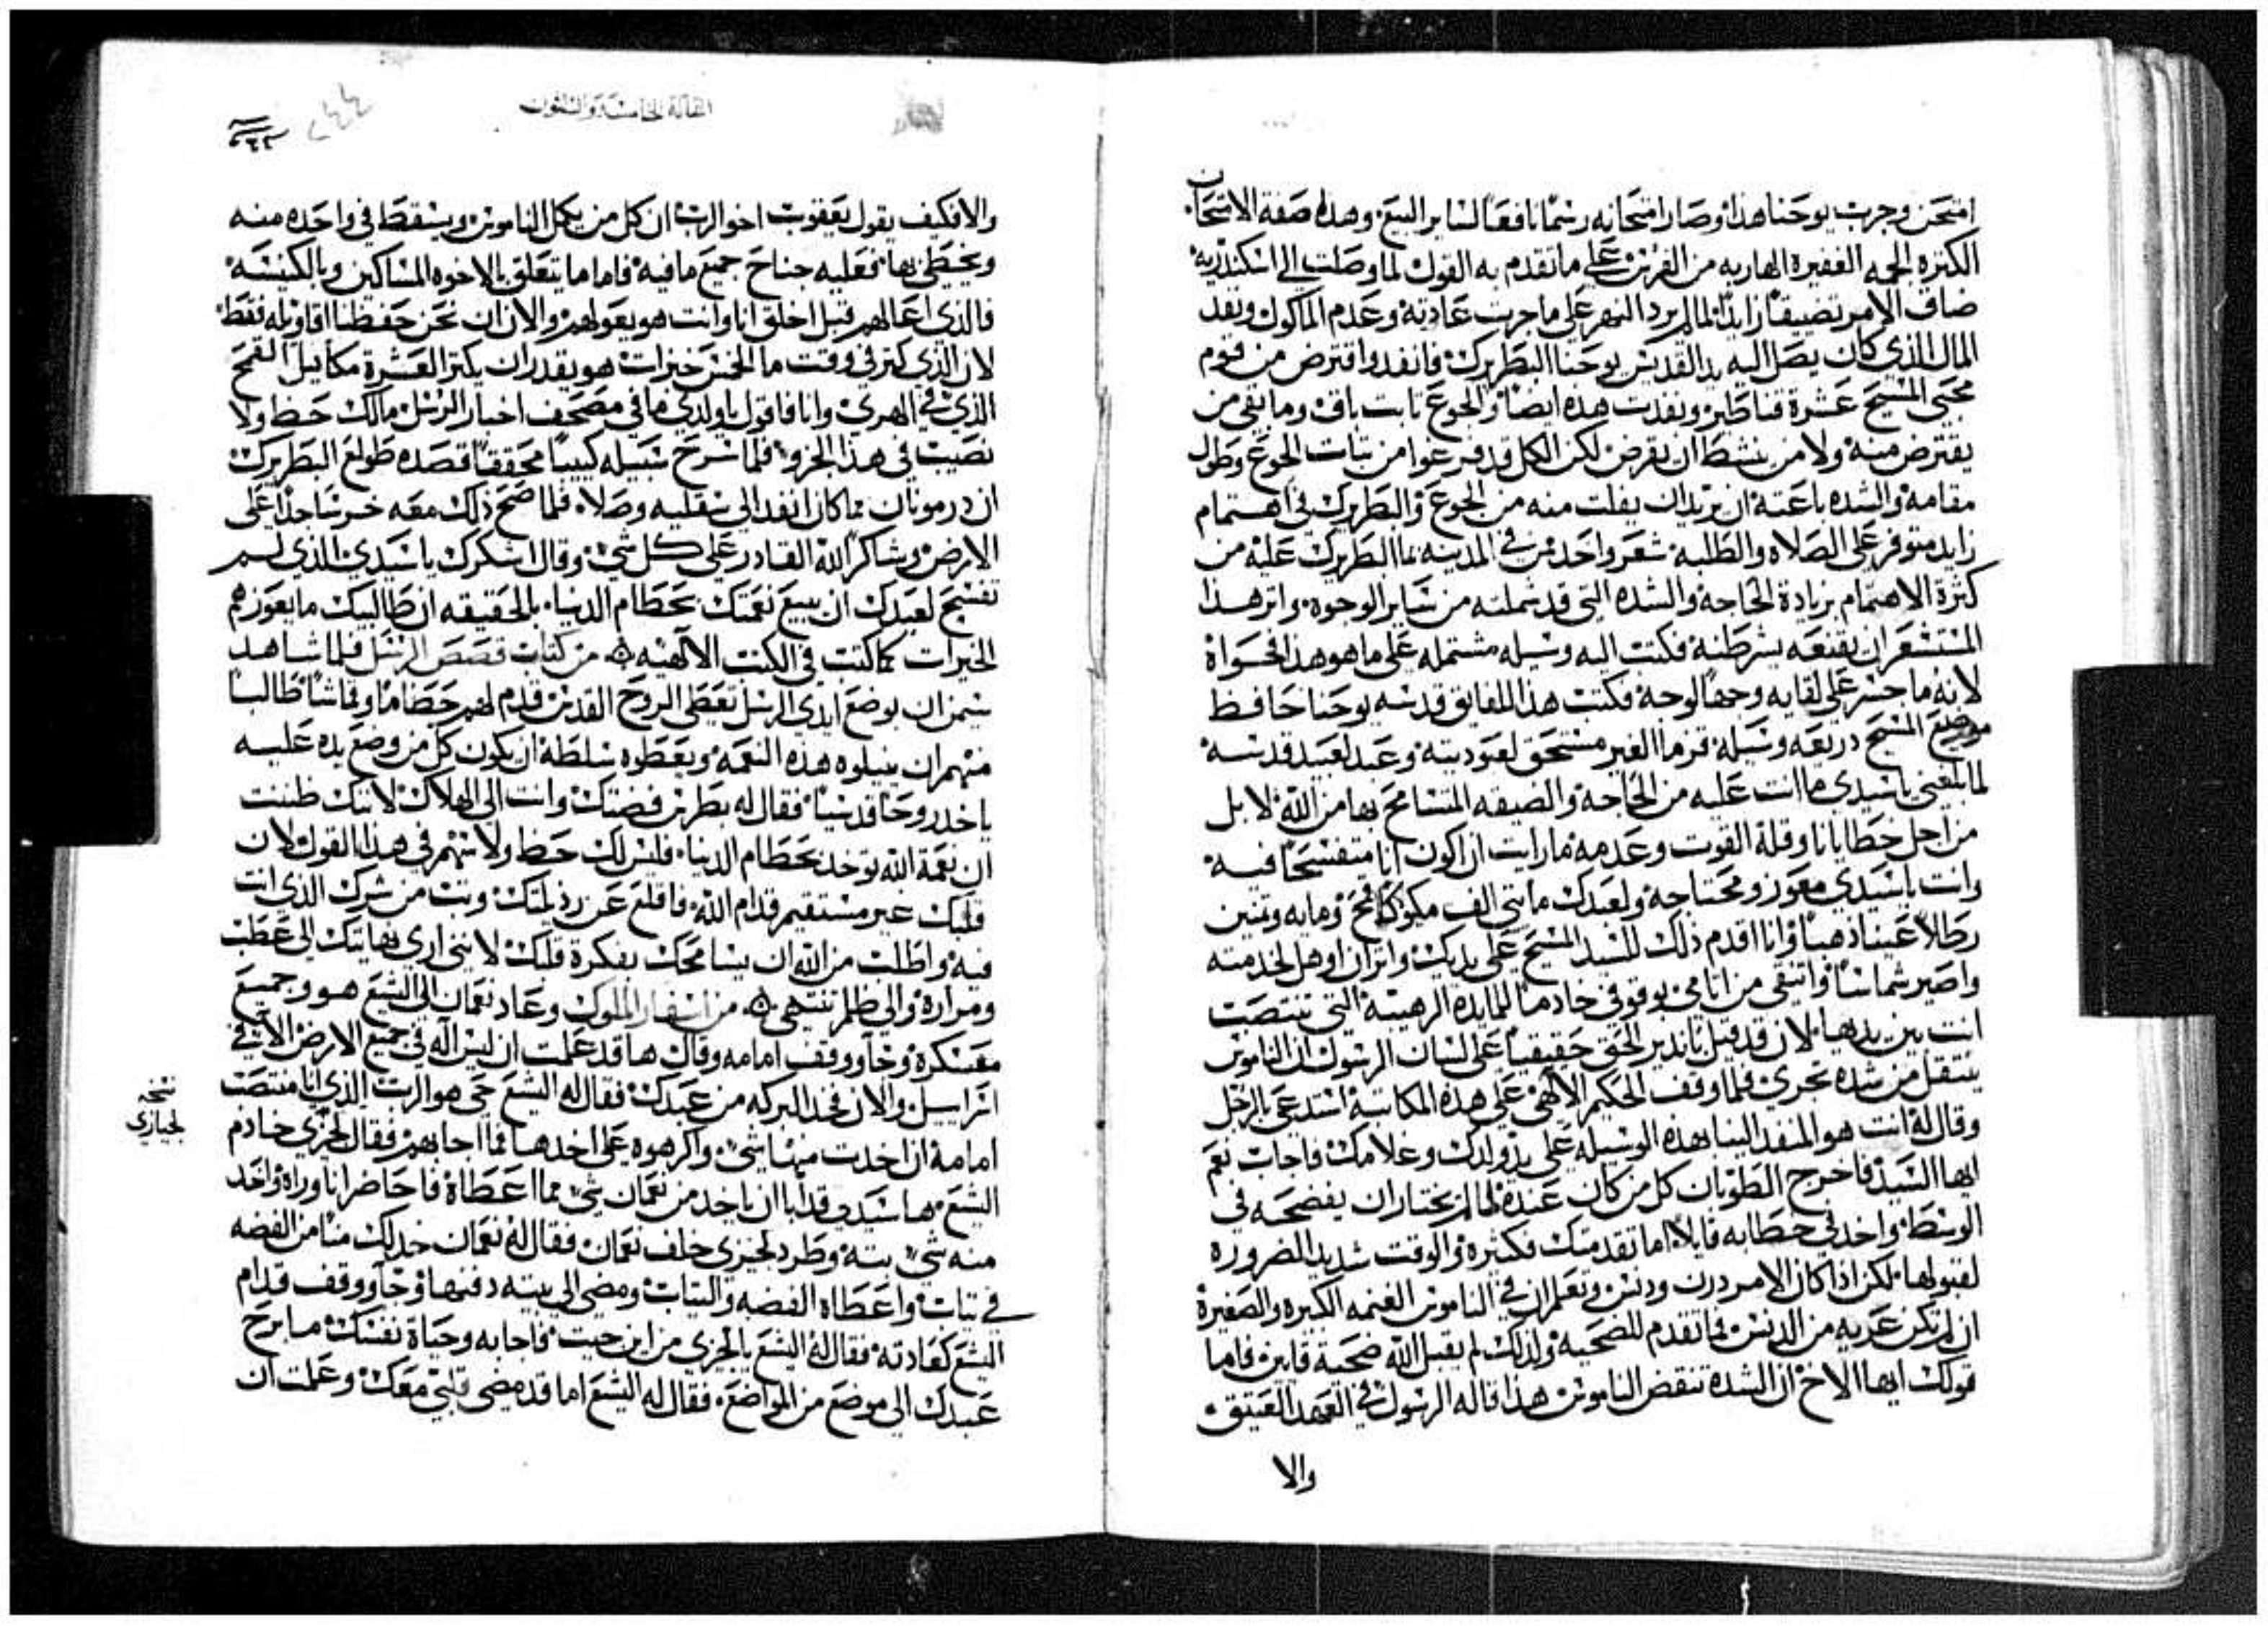 امتحن وجرب يوحنا هذا وصار امتحانه رسما نافعا لساير البيع. وهذه صفة الامتحان
الكتره الجمه الغفيره الهاربه من الفرس على ما تقدم به القول لما وصلت الى اسكندريه
ضاق الامر تضيقا زايدا لما لم يرد النهر على ما جرت عادته وعدم الماكول ونفد
المال الذي كان يصل اليه يد القديس يوحنا البطريرك فانفد واقترض من قوم
محبي المسيح عشرة قناطير ونفدت هذه ايضا والجوع ثابت باق وما بقي من
يقترض منه ولا من ينشط ان يقرض لكن الكل قد فرغوا من تبات الجوع وطول
مقامه والشده باعته ان يريد ان يفلت منه من الجوع والبطريرك في اهتمام
زايد متوفر على الصلاه والطلبه شعر واحد من في المدينه بما البطريرك عليه من
كثرة الاهتمام بزيادة الحاجة والشده التي قد شملته من ساير الوجوه. واثر هذا
المستشعر ان يقنعه بشرطنه فكتب اليه وسيله مشتمله على ما هو هذا فحواه
لانه ما جسر على لقايه وجها لوجه فكتب هذا للفايق قدسه يوحنا حافظ
موضع المسيح دريعه وسيله قزما الغير مستحق لعبوديته وعبد لعبيد قدسه
لما بلغني ياسيدي ما انت عليه من الحاجة والضيقه المتسامح بها من الله لا بل
من اجل خطايانا وقلة القوت وعدمه ما رايت ان اكون انا متفسحا فيه
وانت ياسيدي معوز ومحتاجه ولعبدك مايتي الف مكوك قمح ومايه وتمنين
رطلا عينا ذهبا وانا اقدم ذلك للسيد المسيح على يديك واثر ان اوهل لخدمته
واصير شماسا واتنقى من اثامي بوقوفي خادما للمايده الرهيبة التي تنتصب
انت بين يديها. لان قد قيل يانذير الحق حقيقيا على لسان الرسول ان الناموس
ينتقل من شده تجري فلما وقف الحكيم الالهي على هذه المكاتبة استدعى بالرجل
وقال له انت هو المنفد الينا بهذه الوسيله على يد ولدك وغلامك فاجاب نعم
ايها السيد فاخرج الطوبان كل من كان عنده لما لم يختار ان يفضحه في
الوسط واخد في خطابه قايلا اما تقدمتك فكثيره والوقت شديد الضروره
لقبولها. لكن اذا كان الامر درن ودنس وتعلم ان في الناموس الغنمه الكبيره والصغيرة
ان لم تكن عريه من الدنس فما تقدم للضحيه ولذلك لم يقبل الله ضحية قاين. فاما
قولك ايها الاخ ان الشده تنقض الناموس هذا قاله الرسول في العهد العتيق.
والا
المقالة الخامسة والستون
والا فكيف يقول يعقوب اخو الرب ان كل من يكمل الناموس ويسقط في واحده منه
ويخطي بها فعليه جناح جميع ما فيه فاما ما يتعلق بالاخوه المساكين وبالكنيسه
فالذي اعالهم قبل اخلق انا وانت هو يعولهم والان ان نحن حفظنا اقاويله فقط
لان الذي كثر في وقت ما الخمس خبزات هو يقدر ان يكتر العشرة مكاييل القمح
الذي في الهري وانا فاقول ياولدي ما في مصحف اخبار الرسل مالك حظ ولا
نصيب في هذا الجزو. فلما سرح سبيله كيبا محققا قصده طولع البطريرك
ان درمونان مما كان انفد الى سقليه وصلا. فلما صح ذلك معه خر ساجدا على
الارض وشاكرا الله القادر على كل شي وقال اشكرك ياسيدي الذي لم
تفسح لعبدك ان يبيع نعمتك بحطام الدنيا. بالحقيقه ان طالبيك ما يعوزهم
الخيرات كما كتب في الكتب الالهيه. من كتاب قصص الرسل فلما شاهد
سيمن ان بوضع ايدي الرسل تعطى الروح القدس قدم لهم حطاما وقماشا طالبا
منهم ان ينيلوه هذه النعمه ويعطوه سلطة ان يكون كل من وضع يده عليه
ياخد روحا قدسيا فقال له بطرس فضتك وانت الى الهلاك لانك ظننت
ان نعمة الله توخد بحطام الدنيا. فليس لك حظ ولا سهم في هذا القول لان
قلبك غير مستقيم قدام الله. فاقلع عن رذيلتك وتب من شرك الذي انت
فيه واطلب من الله ان يسامحك بفكرة قلبك لانني اري نهايتك الى عطب
ومراره والى ظلم تنتهي. من اسفار الملوك وعاد نعمان الى اليشع هو وجميع
معسكره وجآ ووقف امامه وقال ها قد علمت ان ليس اله في جميع الارض الا في
اسراييل. والان فخد البركه من عبدك فقال له اليشع حي هو الرب الذي انا منتصب
امامه ان اخدت منها شي. واكرهوه على اخدها فما اجابهم فقال لجيزي خادم
نسخه
لجيازي
اليشع. ها سيدي قد ابا ان ياخد من نعمان شي مما اعطاه فاحاضر انا وراه واخد
منه شي بته. وطرد لجيزي خلف نعمان فقال له نعمان خد لك منا من الفضه
في تياب واعطاه الفضه والتياب ومضى الى بيته دفنها وجآ ووقف قدام
اليشع كعادته. فقال له اليشع ياجيزي من اين جيت فاجابه وحياة نفسك ما برح
عبدك الى موضع من المواضع. فقال له اليشع اما قد مضى قلبي معك وعلمت ان